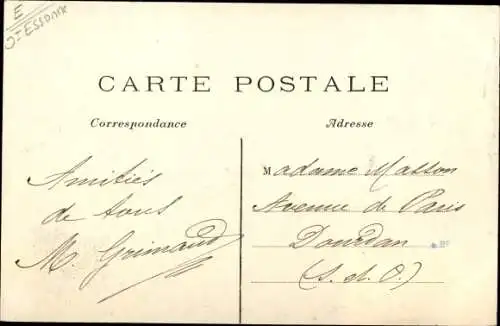 E
0=ESSONNE
CARTE POSTALE
Correspondance
Adresse
Amitiés
de tous
M. Grimaud
Madame Masson
Avenue de Paris
Dourdan
(S. et O.)